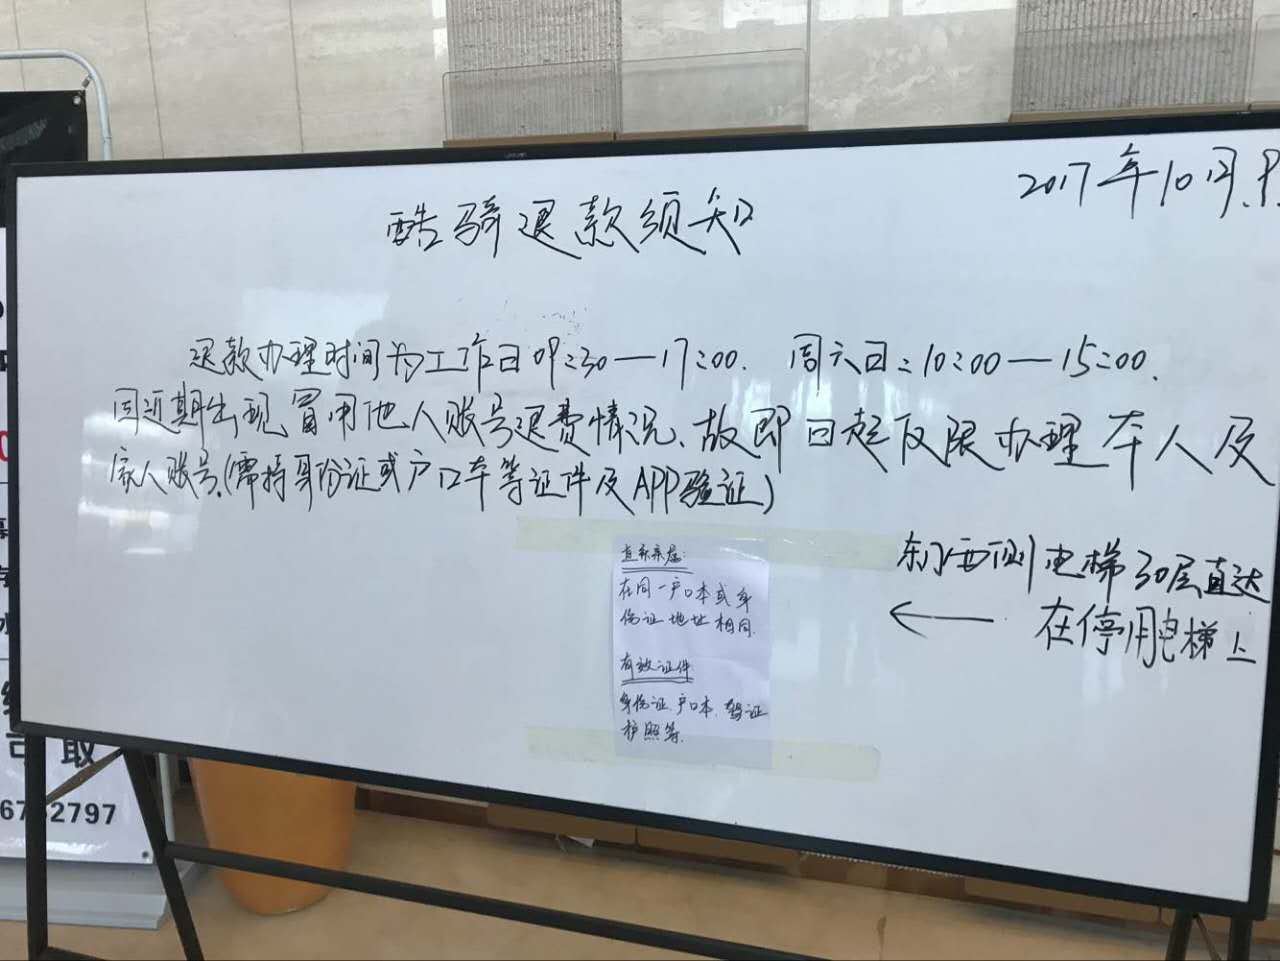 2017年10月.
酷骑退款须知
退款办理时间为工作日09:30—17:00. 周六日:10:00—15:00.
因近期出现冒用他人账号退费情况、故即日起仅限办理本人及
家人账号.(需持身份证或户口本等证件及APP验证)
东门西侧电梯30层直达
在停用电梯上
直系亲属:
在同一户口本或身
份证地址相同.
有效证件
身份证.户口本.驾证
护照等.
取
2797